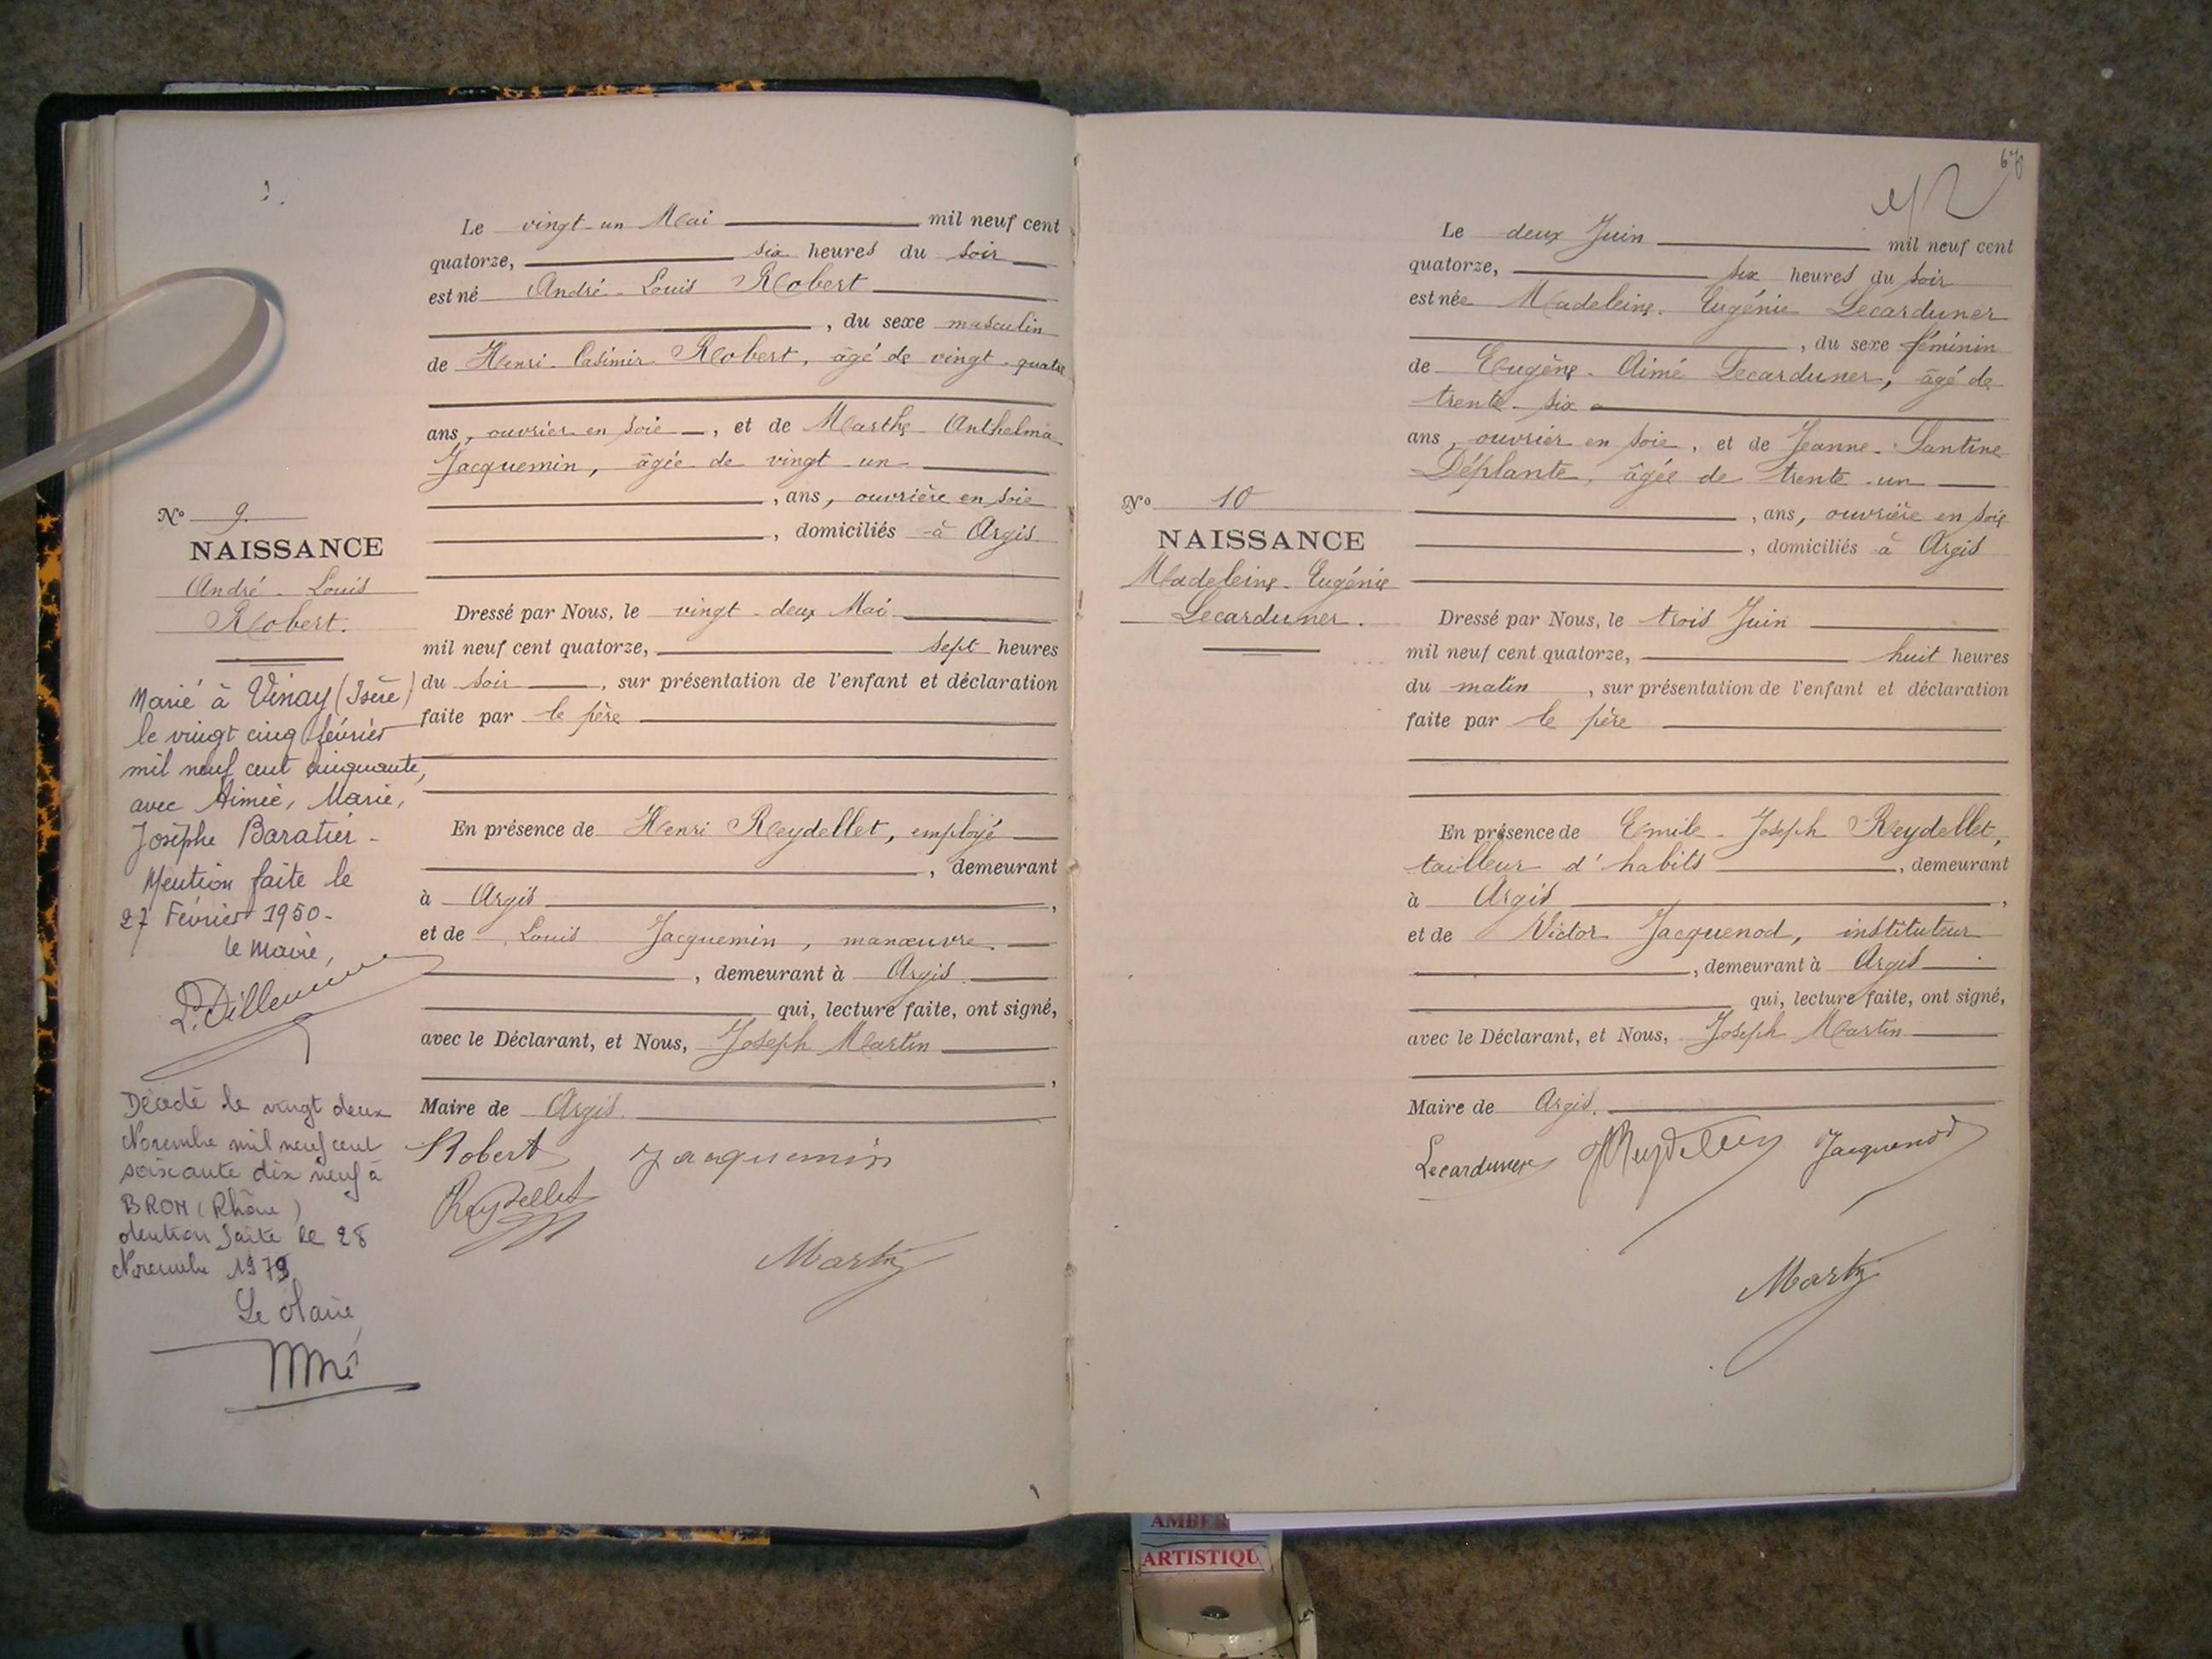 N° 9.
NAISSANCE
André - Louis
Robert.
Marié à Vinay (Isère)
le vingt cinq février
mil neuf cent cinquante,
avec Aimée, Marie,
Josèphe Baratier -
Mention faite le
27 Février 1950 -
le Maire,
Décédé le vingt deux
Novembre mil neuf cent
soixante dix neuf à
BRON (Rhône)
Mention faite le 28
Novembre 1979
Le Maire
Le vingt-un Mai mil neuf cent
quatorze, six heures du soir
est né André-Louis Robert
, du sexe masculin
de Henri-Casimir Robert, âgé de vingt-quatre
ans, ouvrier en soie, et de Marthe-Anthelma
Jacquemin, âgée de vingt-un
, ans, ouvrière en soie
, domiciliés à Argis
Dressé par Nous, le vingt-deux Mai
mil neuf cent quatorze, sept heures
du soir, sur présentation de l'enfant et déclaration
faite par le père
En présence de Henri Reydellet, employé
, demeurant
à Argis,
et de Louis Jacquemin, manœuvre.
, demeurant à Argis
qui, lecture faite, ont signé,
avec le Déclarant, et Nous, Joseph Martin
,
Maire de Argis.
Robert Jacquemin
Reydellet
Martin
670
Le deux Juin mil neuf cent
quatorze, six heures du soir
est née Madeleine-Eugénie Lecarduner
, du sexe féminin
de Eugène-Aimé Lecarduner, âgé de
trente-six
ans, ouvrier en soie, et de Jeanne-Santine
Déplante, âgée de trente-un
, ans, ouvrière en soie
, domiciliés à Argis
N° 10
NAISSANCE
Madeleine-Eugénie
Lecarduner.
Dressé par Nous, le trois Juin
mil neuf cent quatorze, huit heures
du matin, sur présentation de l'enfant et déclaration
faite par le père
En présence de Emile-Joseph Reydellet,
tailleur d'habits, demeurant
à Argis,
et de Victor Jacquenod, instituteur
, demeurant à Argis
qui, lecture faite, ont signé,
avec le Déclarant, et Nous, Joseph Martin
Maire de Argis.
Lecarduner Reydellet Jacquenod
Martin
ARTISTIQU